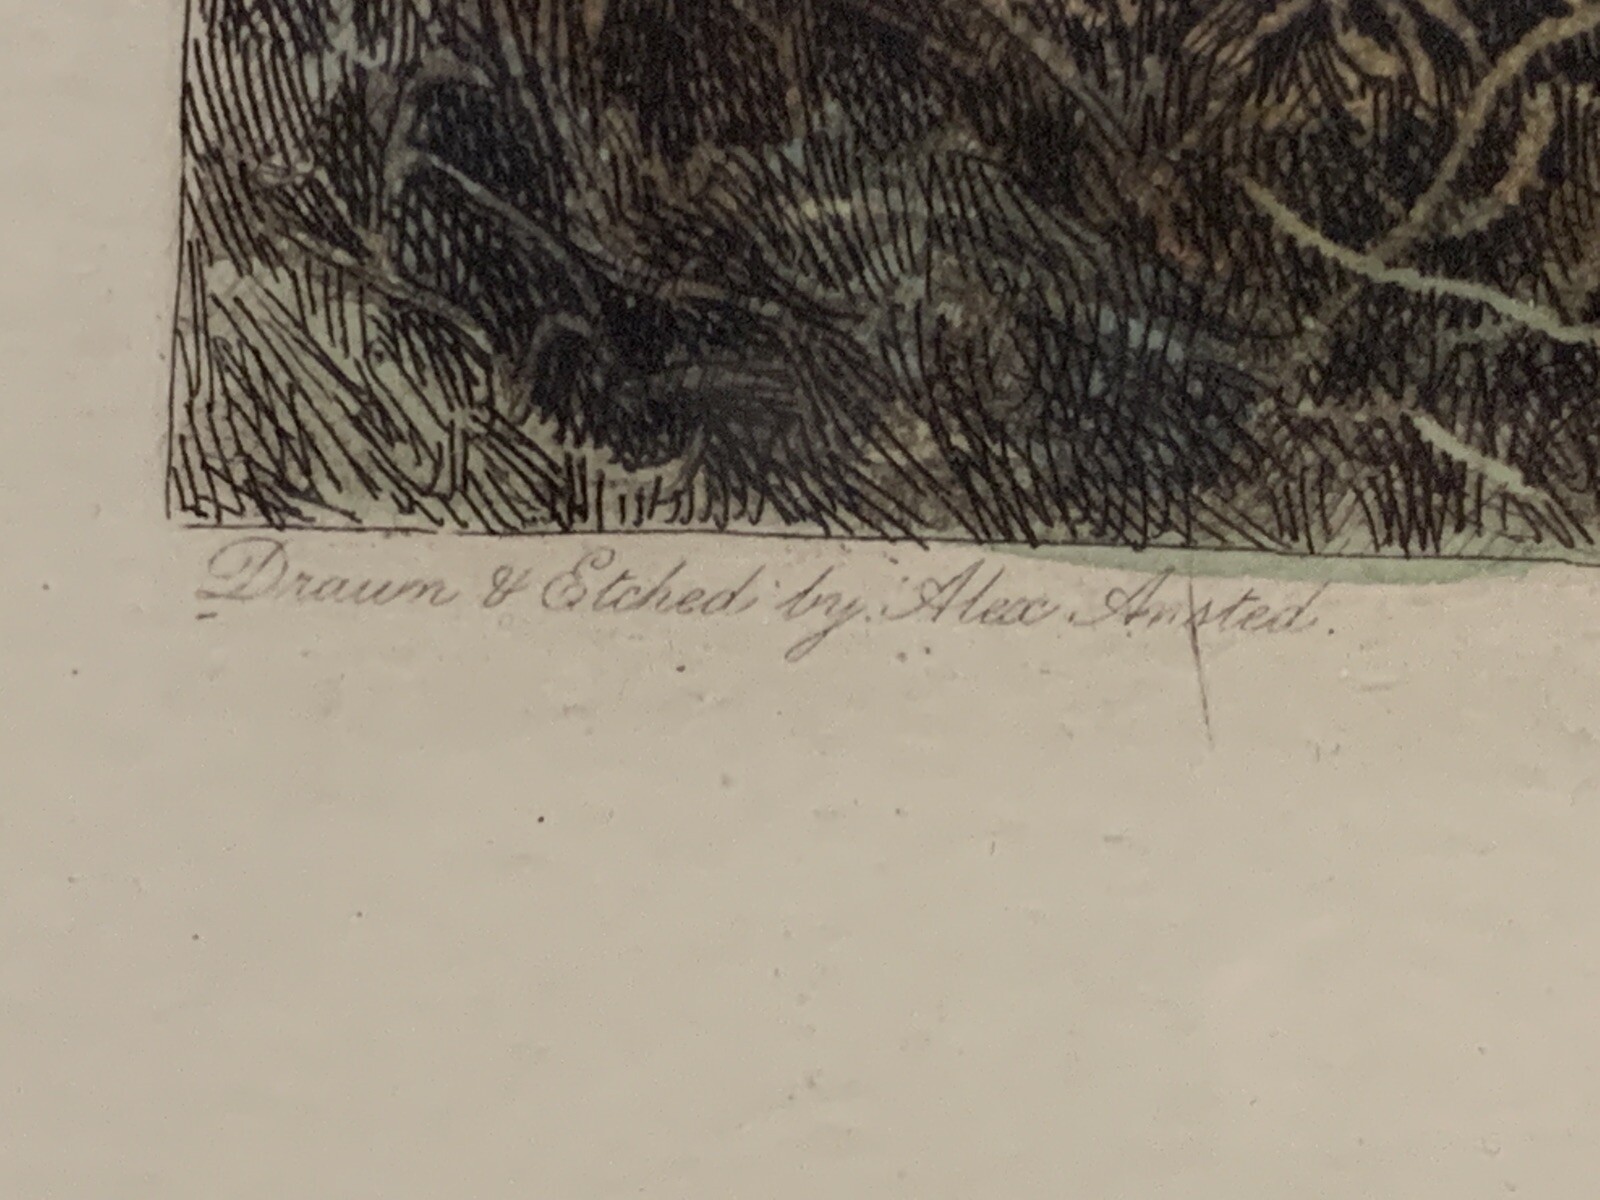 Drawn & Etched by Alex. Ansted.